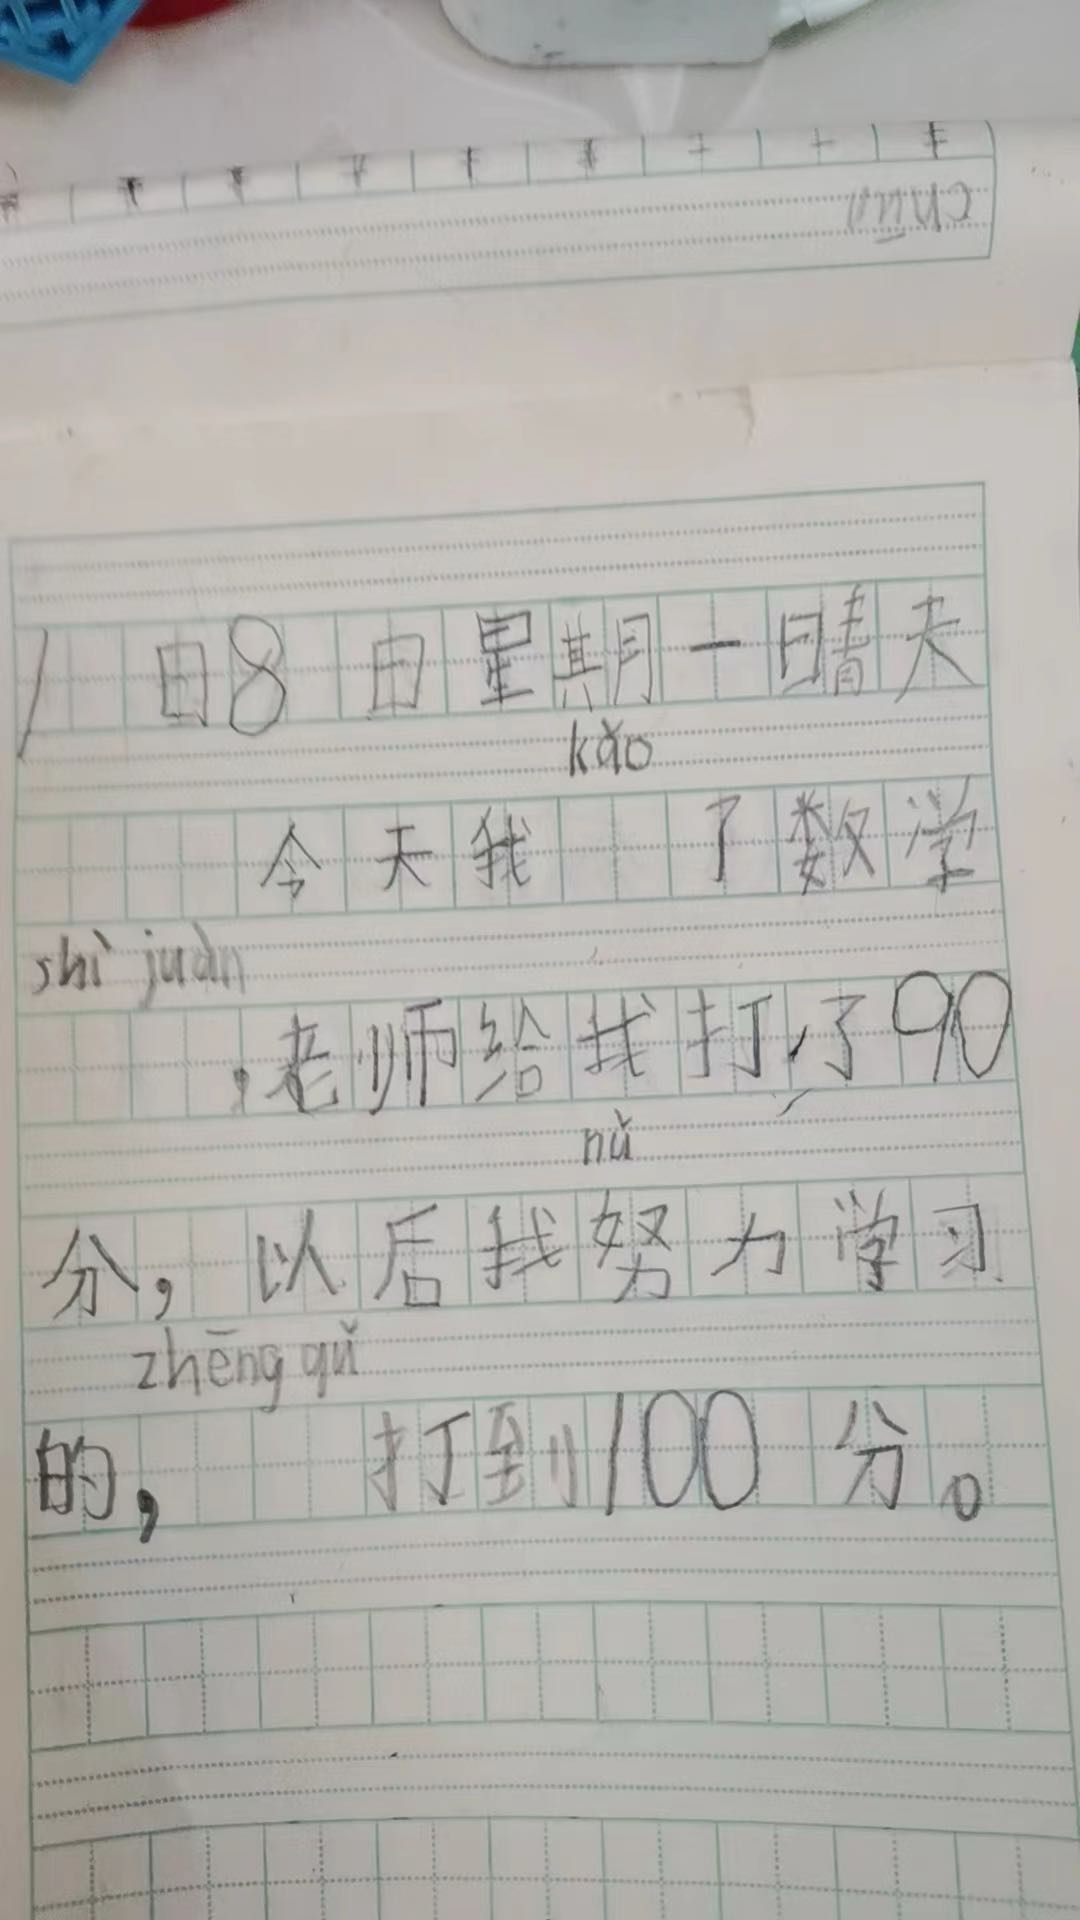 1日8日星期一晴天
kǎo
今天我 了数学
shì juàn
,老师给我打了90
nǔ
分,以后我努力学习
zhēng qǔ
的, 打到100分。